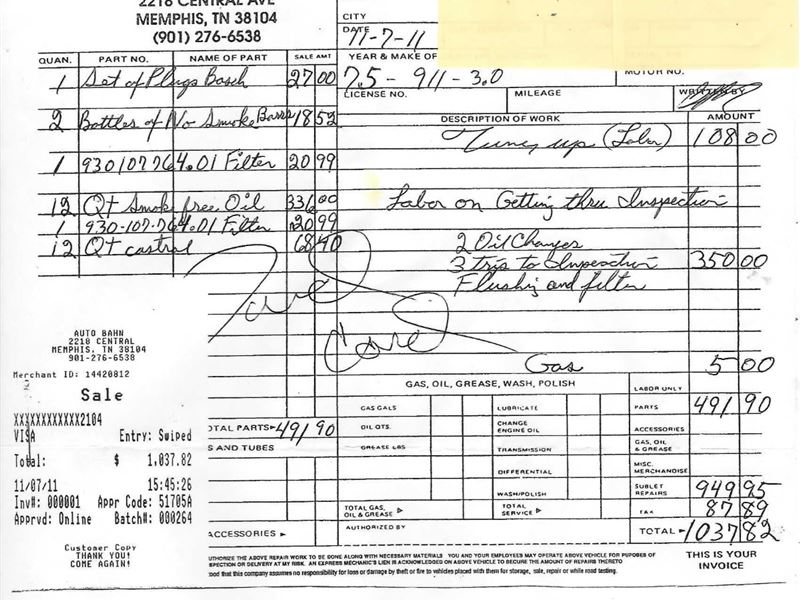 2218 CENTRAL AVE
MEMPHIS, TN 38104
(901) 276-6538
CITY
DATE
11-7-11
YEAR & MAKE OF
75 - 911 - 3.0
MOTOR NO.
LICENSE NO.
MILEAGE
WRITTEN BY
QUAN. PART NO. NAME OF PART SALE AMT
1 Set of Plugs Bosch 27 00
2 Bottles of No Smoke Barrs 18 52
1 930 107 764.01 Filter 20 99
12 Qt Smoke free Oil 336 00
1 930-107-764.01 Filter 20 99
12 Qt castrol 68 40
DESCRIPTION OF WORK AMOUNT
Tune up (Labor) 108 00
Labor on Getting thru Inspection
2 Oil Changes
3 trip to Inspection 350 00
Flushing and filter
Gas 5 00
TOTAL PARTS 491 90
S AND TUBES
ACCESSORIES
GAS, OIL, GREASE, WASH, POLISH
GAS GALS
OIL QTS.
GREASE LBS
TOTAL GAS, OIL & GREASE
LUBRICATE
CHANGE ENGINE OIL
TRANSMISSION
DIFFERENTIAL
WASH/POLISH
TOTAL SERVICE
AUTHORIZED BY
LABOR ONLY
PARTS 491 90
ACCESSORIES
GAS, OIL & GREASE
MISC. MERCHANDISE
SUBLET REPAIRS 949 95
TAX 87 89
TOTAL 1037 82
THIS IS YOUR INVOICE
UTHORIZE THE ABOVE REPAIR WORK TO BE DONE ALONG WITH NECESSARY MATERIALS YOU AND YOUR EMPLOYEES MAY OPERATE ABOVE VEHICLE FOR PUPOSES OF
SPECTION OR DELIVERY AT MY RISK. AN EXPRESS MECHANIC'S LIEN IS ACKNOWLEDGED ON ABOVE VEHICLE TO SECURE THE AMOUNT OF REPAIRS THERETO
tood that this company assumes no responsibility for loss or damage by theft or fire to vehicles placed with them for storage, sale, repair or while road testing.
AUTO BAHN
2218 CENTRAL
MEMPHIS, TN 38104
901-276-6538
Merchant ID: 14420812
Sale
XXXXXXXXXXXX2104
VISA Entry: Swiped
Total: $ 1,037.82
11/07/11 15:45:26
Inv#: 000001 Appr Code: 51705A
Apprvd: Online Batch#: 000264
Customer Copy
THANK YOU!
COME AGAIN!